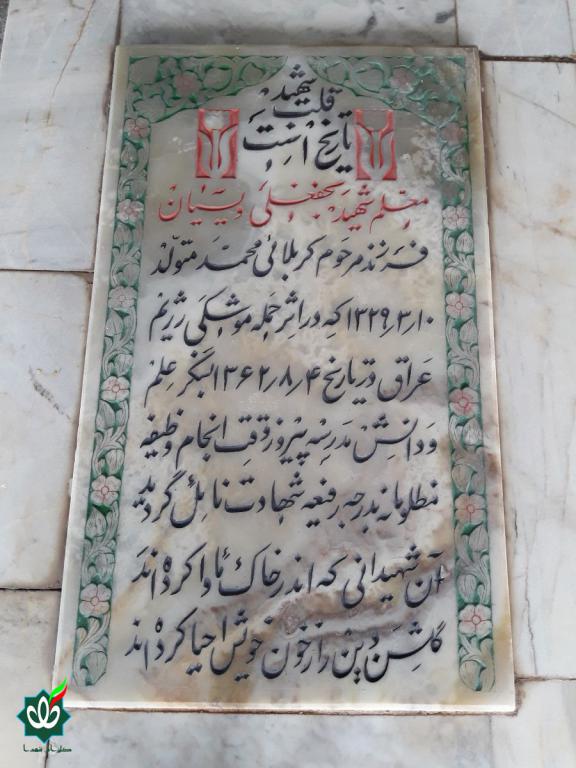 شهید
قلب
تاریخ است
معلم شهید نجفعلی ویسیان
فرزند مرحوم کربلائی محمد متولد
۱۳۲۹٫۳٫۱۰ که در اثر حمله موشکی رژیم
عراق در تاریخ ۱۳۶۲٫۸٫۴ سنگر علم
و دانش مدرسه پیروز وقت انجام وظیفه
مظلومانه بدرجه رفیعه شهادت نائل گردید
آن شهیدانی که اندر خاک ماوا کرده اند
گلشن دین را ز خون خویش احیا کرده اند
گلزار شهدا